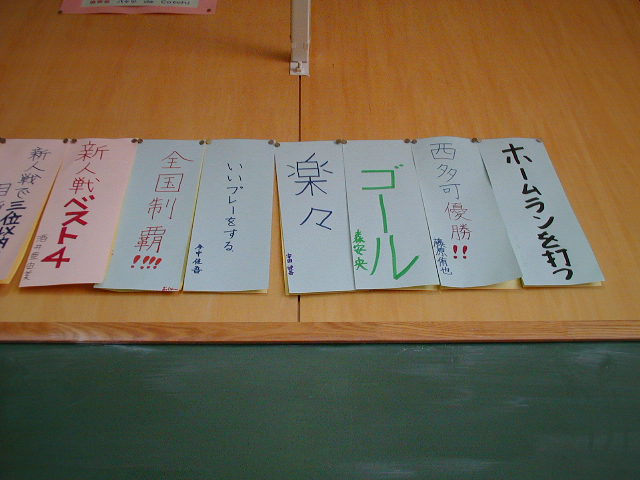 ホームランを打つ
西多可優勝!!
ゴール
森安 央
楽々
いいプレーをする
全国制覇!!!!
新人戦ベスト4
新人戦で三位以内